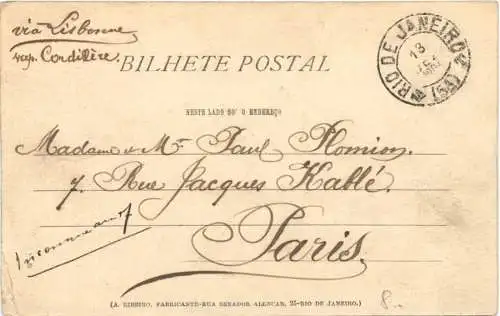 via Lisbonne
vap. Cordillère
BILHETE POSTAL
RIO DE JANEIRO
13
(5A)
NESTE LADO SÓ O ENDEREÇO
Madame & Mr Paul Plomion
7, Rue Jacques Kablé.
Paris.
(A. RIBEIRO, FABRICANTE-RUA SENADOR ALENCAR, 25-RIO DE JANEIRO.)
8.-